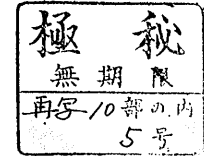 極秘
無期限
再写10部の内
5号